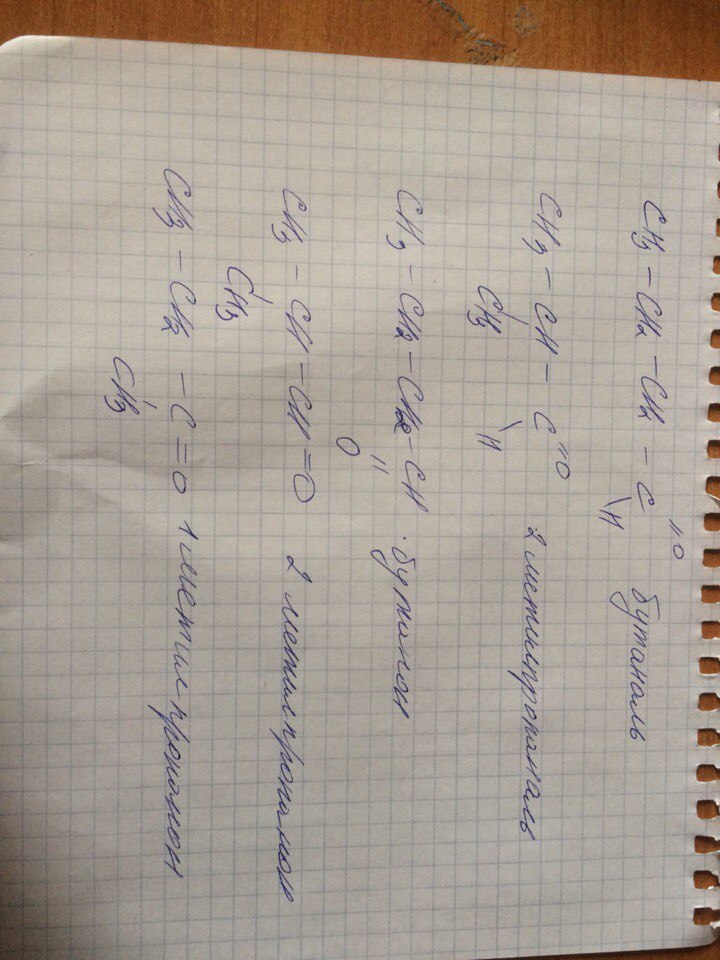 CH3 – CH2 – CH2 – C =O \H бутаналь
CH3 – CH – C =O \H 2 метилпропаналь
CH3
CH3 – CH2 – CH2 – CH . бутанон
=
O
CH3 – CH – CH = O 2 метилпропанон
CH3
CH3 – CH2 – C = O 1 метилпропанон
CH3